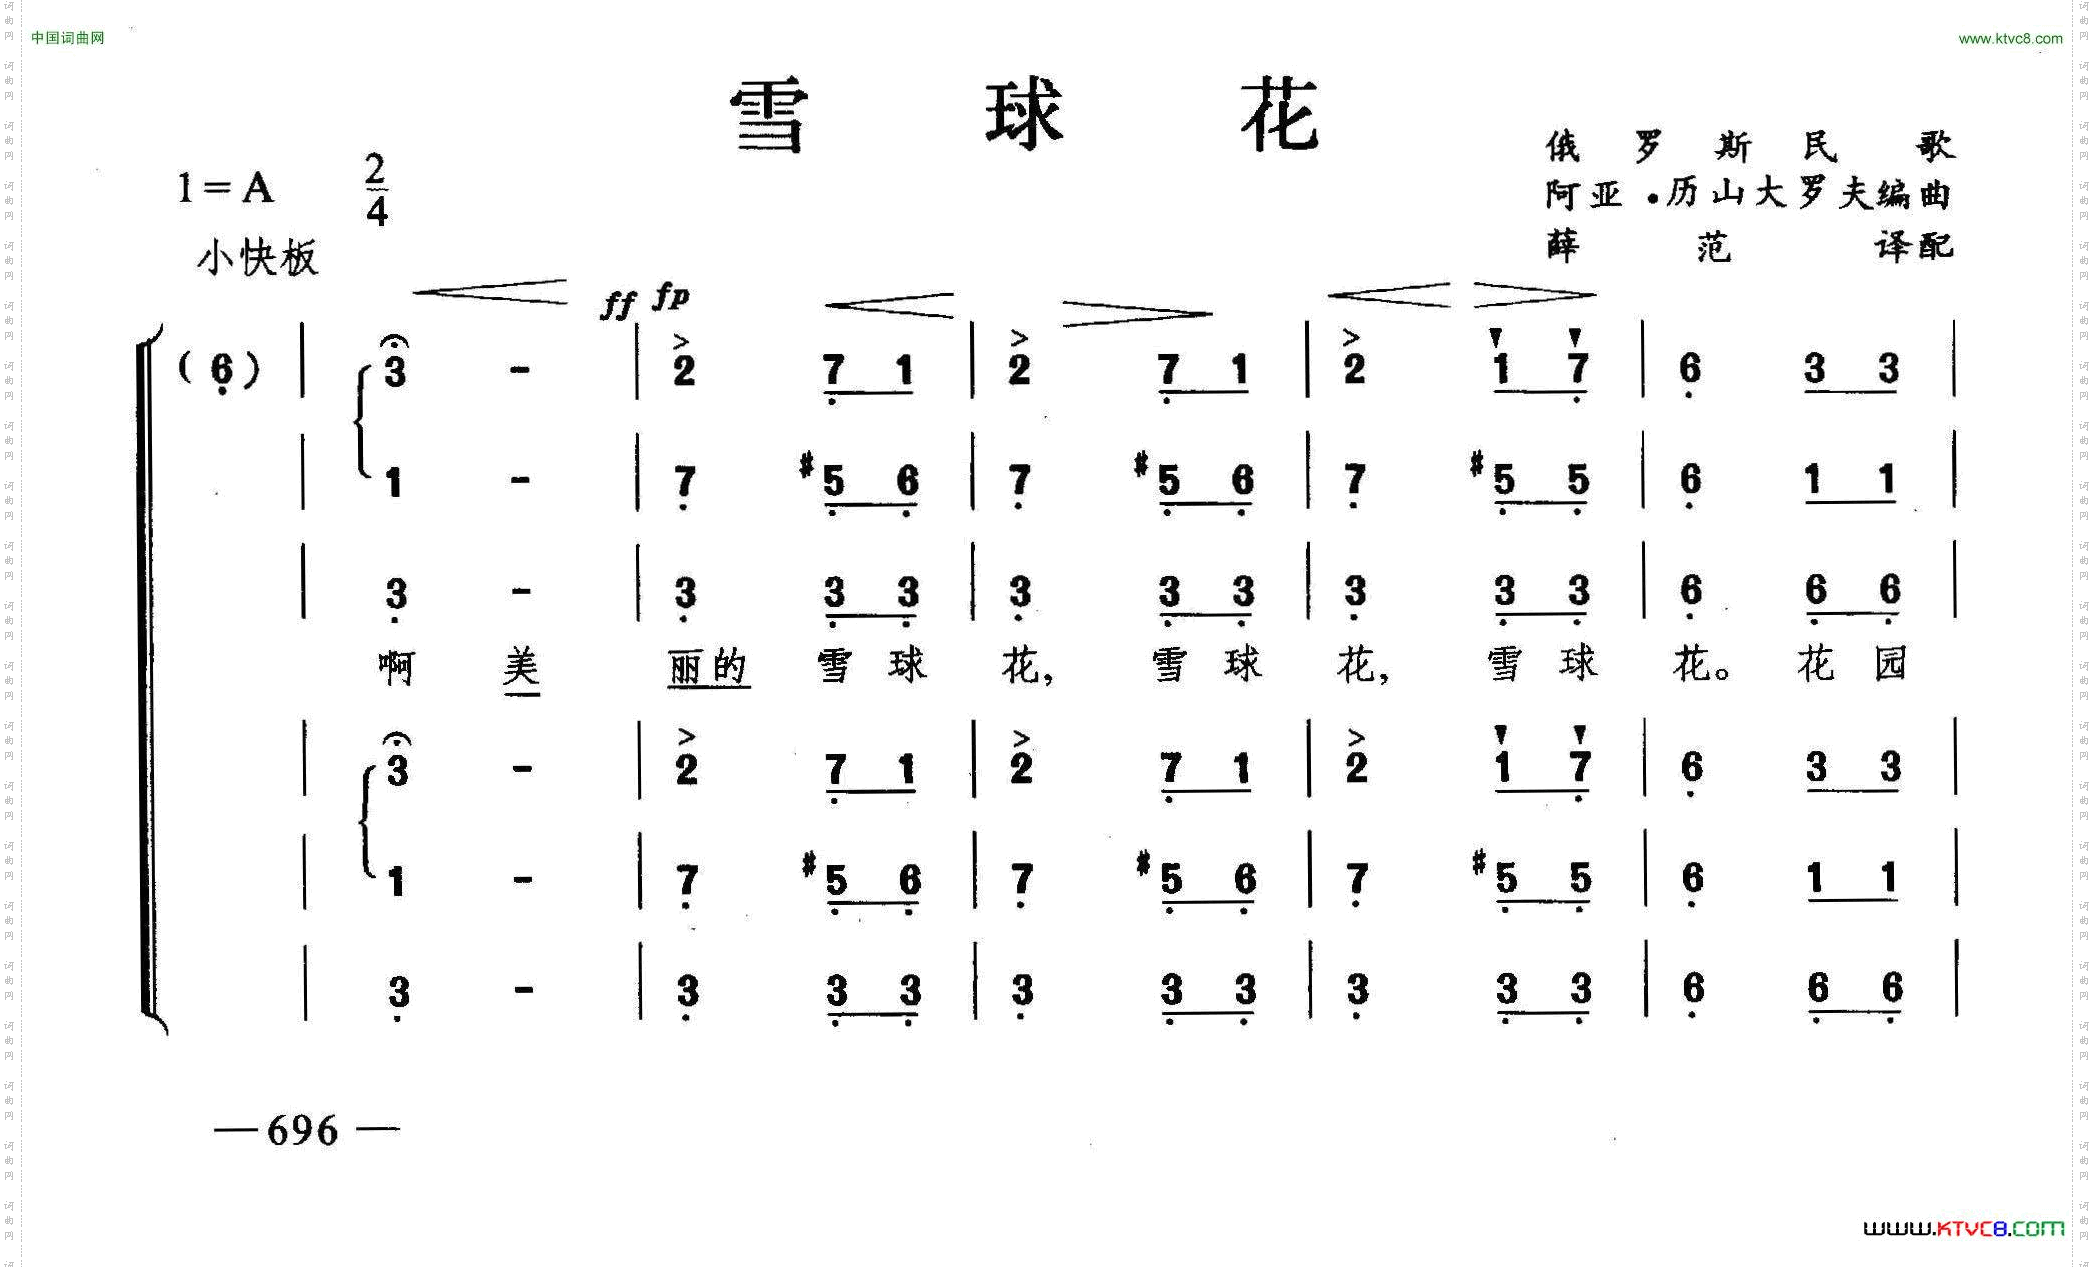 中国词曲网
www.ktvc8.com
雪 球 花
俄罗斯民歌
阿亚·历山大罗夫编曲
薛范译配
1=A 2/4
小快板
ff fp
(6) | 3 - | 2 7 1 | 2 7 1 | 2 1 7 | 6 3 3 |
1 - | 7 #5 6 | 7 #5 6 | 7 #5 5 | 6 1 1 |
3 - | 3 3 3 | 3 3 3 | 3 3 3 | 6 6 6 |
啊 美 丽的 雪 球 花, 雪 球 花, 雪 球 花。 花 园
3 - | 2 7 1 | 2 7 1 | 2 1 7 | 6 3 3 |
1 - | 7 #5 6 | 7 #5 6 | 7 #5 5 | 6 1 1 |
3 - | 3 3 3 | 3 3 3 | 3 3 3 | 6 6 6 |
— 696 —
www.KTVC8.COM